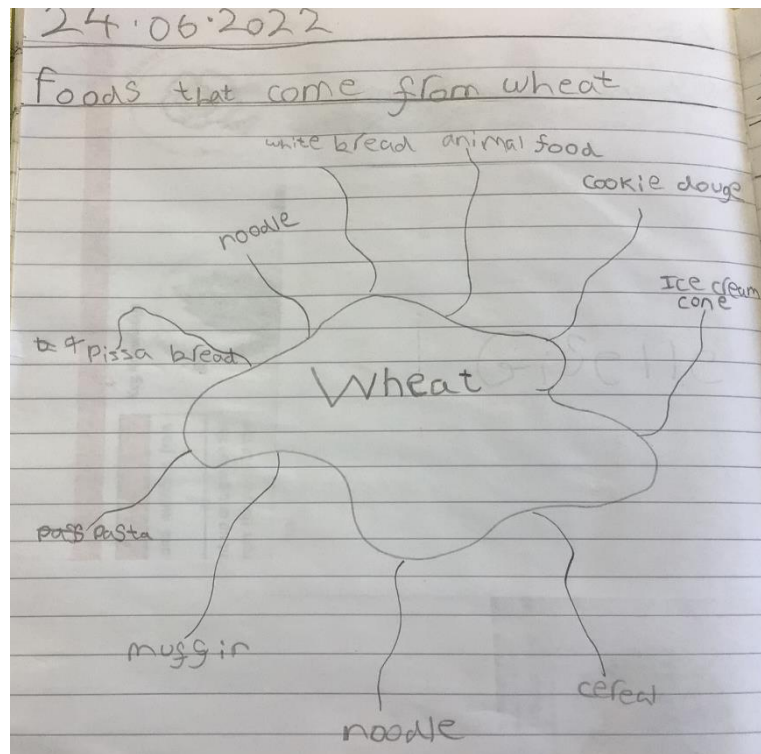 24.06.2022
Foods that come from wheat
white bread animal food
cookie douge
noodle
Ice cream
cone
pissa bread
Wheat
pasta
muffin
noodle
cereal